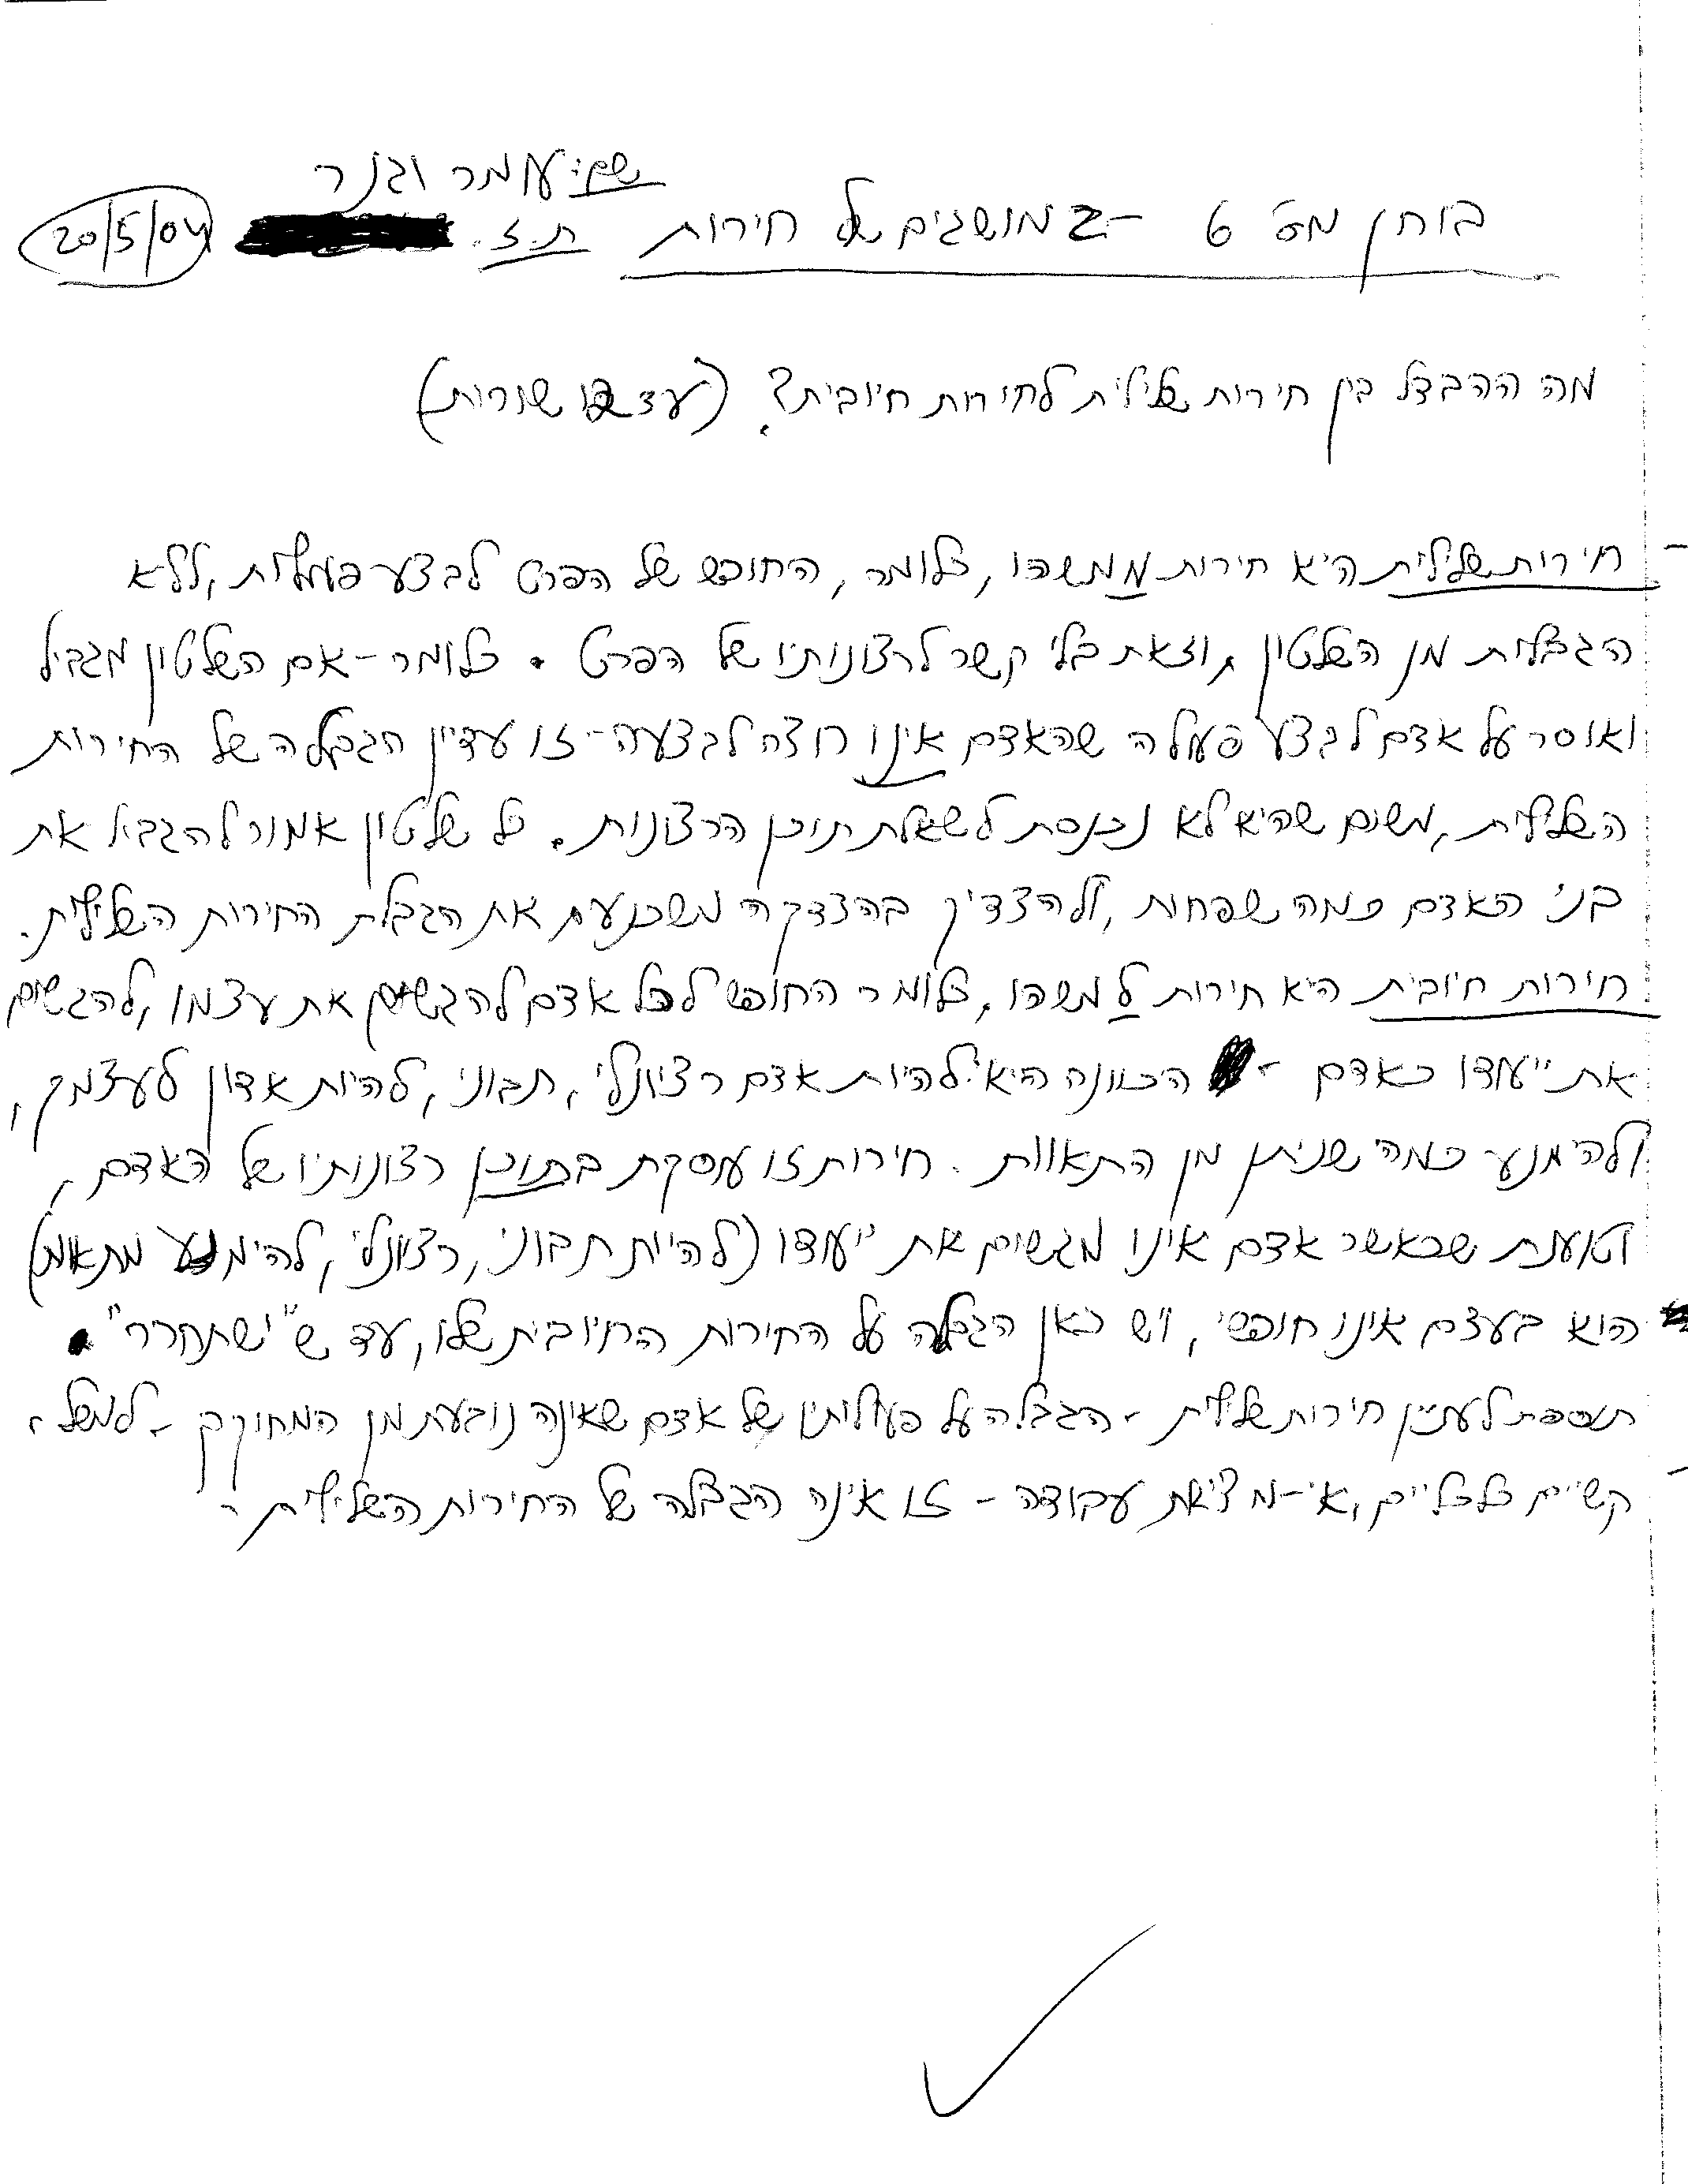 שם: עומר וגנר
בוחן מס' 6 - 2 מושגים של חירות ת.ז. 20/5/04
מה ההבדל בין חירות שלילית לחירות חיובית? (עד שורות)
חירות שלילית היא חירות ממשהו, כלומר, החופש של הפרט לבצע פעולות, ללא
הגבלות מן השלטון, וזאת בלי קשר לרצונותיו של הפרט. כלומר - אם השלטון מגביל
ואוסר על אדם לבצע פעולה שהאדם אינו רוצה לבצעה - זו עדיין הגבלה של החירות
השלילית, משום שהיא לא נכנסת לשאלת תוכן הרצונות. כל שלטון אמור להגביל את
בני האדם כמה שפחות, ולהצדיק בהצדקה משכנעת את הגבלת החירות השלילית.
חירות חיובית היא חירות למשהו, כלומר החופש לכל אדם להגשים את עצמו, להגשים
את ייעודו כאדם - הכוונה היא: להיות אדם רציונלי, תבוני, להיות אדון לעצמך,
ולהימנע כמה שניתן מן התאוות. חירות זו עוסקת בתוכן רצונותיו של האדם,
וטוענת שכאשר אדם אינו מגשים את ייעודו (להיות תבוני, רציונלי, להימנע מתאוות)
הוא בעצם אינו חופשי, ויש כאן הגבלה על החירות החיובית שלו, עד ש"ישתחרר".
תוספת לעניין חירות שלילית - הגבלה על פעילותו של אדם שאינה נובעת מן המחוקק - למשל,
קשיים כלכליים, אי-מציאת עבודה - זו אינה הגבלה של החירות השלילית.